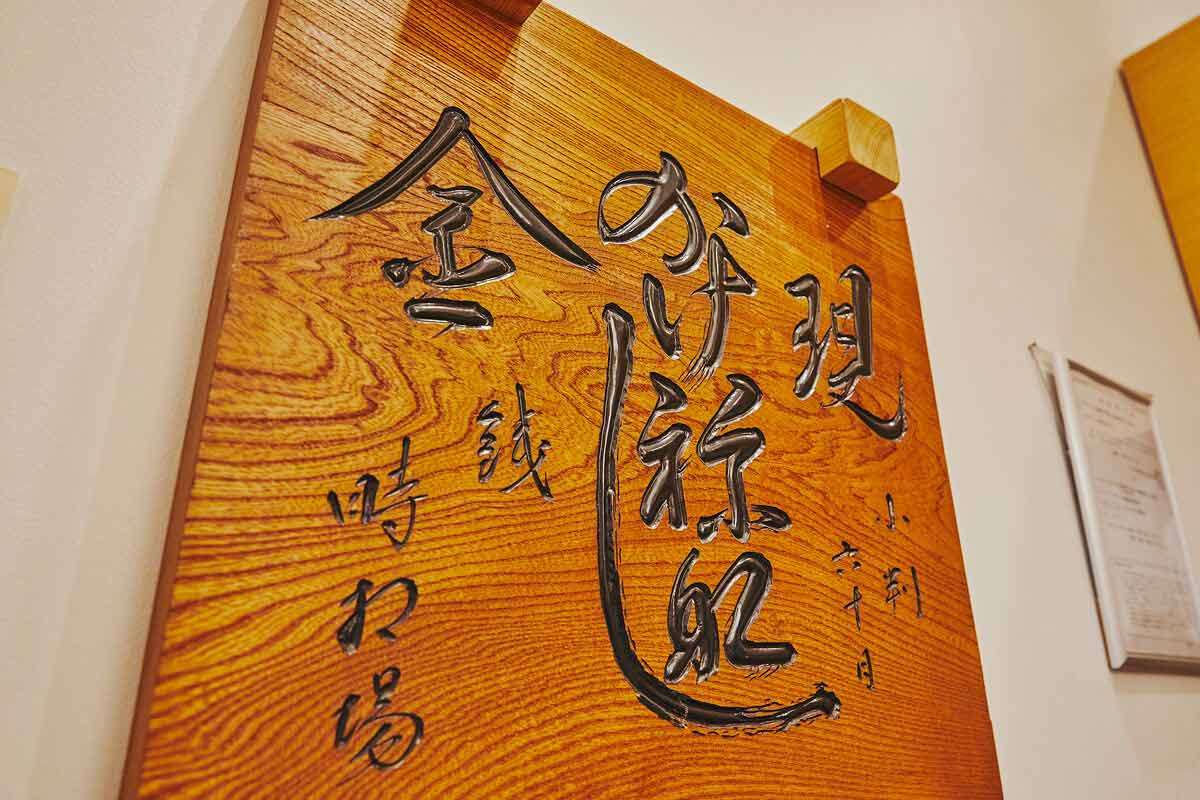 現
小判
六十目
かけ祢那し
金
銭
時相場